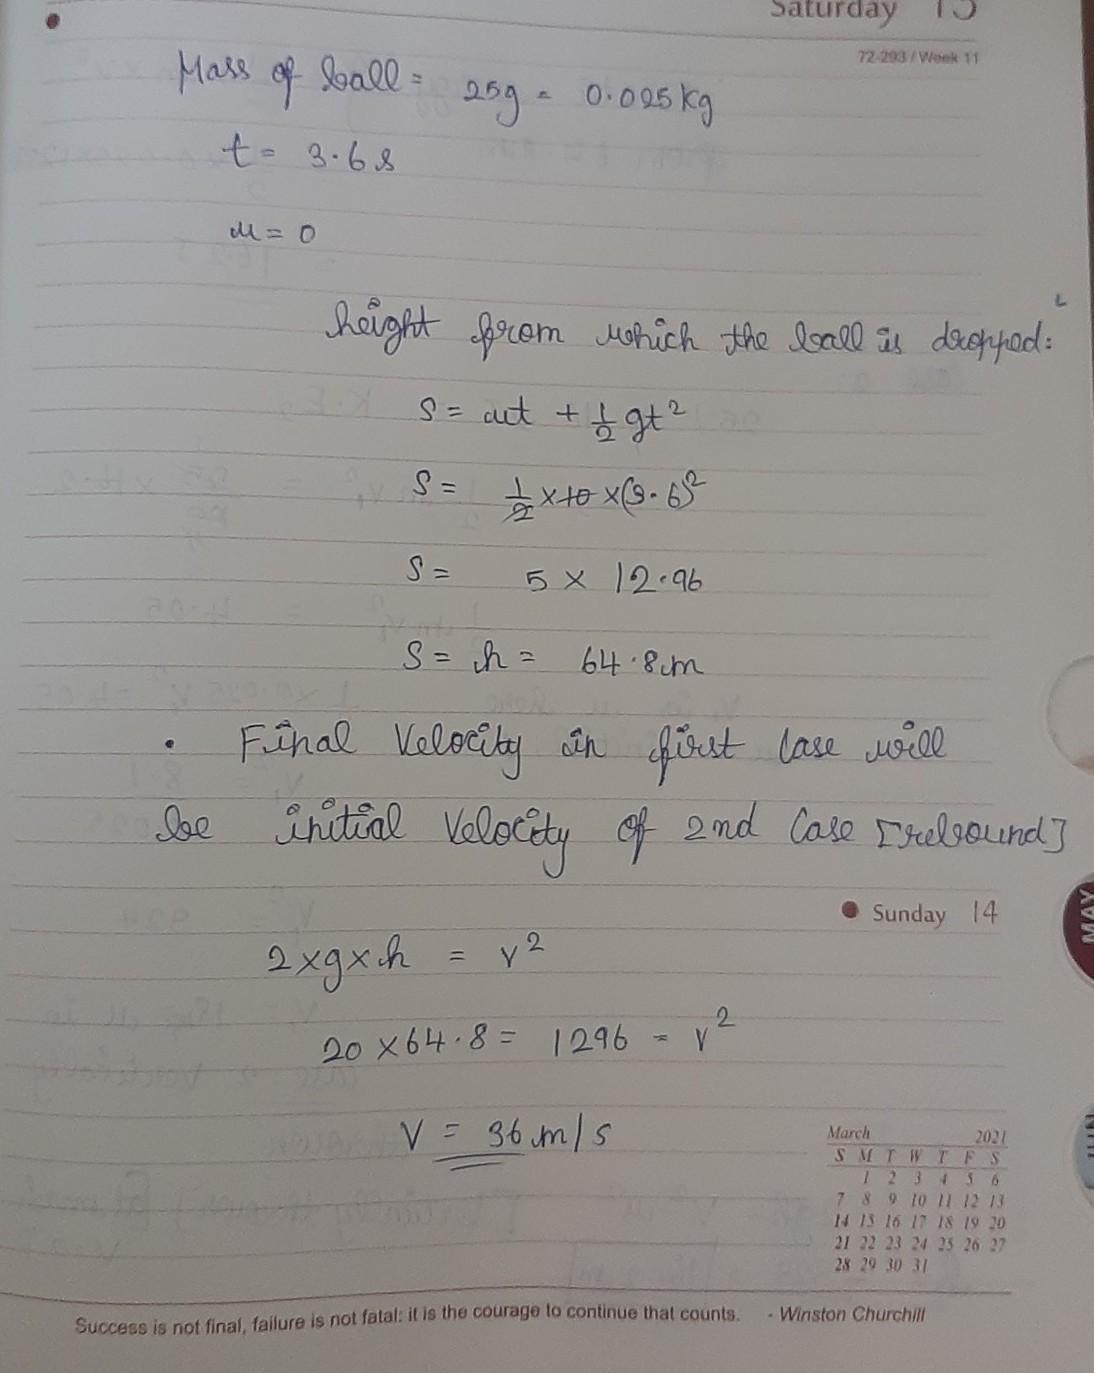 Saturday 13
72-293 / Week 11
Mass of ball = 25g = 0.025 kg
t = 3.6 s
u = 0
height from which the ball is dropped:
S = ut + 1/2 gt²
S = 1/2 × 10 × (3.6)²
S = 5 × 12.96
S = h = 64.8 m
• Final Velocity in first Case will
be initial Velocity of 2nd Case [rebound]
Sunday 14
2 × g × h = v²
20 × 64.8 = 1296 = v²
V = 36 m/s
MAY
JUN
March 2021
S M T W T F S
1 2 3 4 5 6
7 8 9 10 11 12 13
14 15 16 17 18 19 20
21 22 23 24 25 26 27
28 29 30 31
Success is not final, failure is not fatal: it is the courage to continue that counts. - Winston Churchill